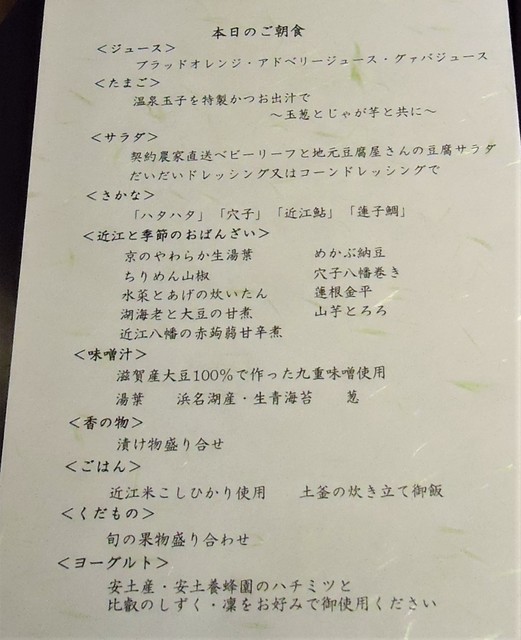 本日のご朝食
＜ジュース＞
ブラッドオレンジ・アドベリージュース・グァバジュース
＜たまご＞
温泉玉子を特製かつお出汁で
～玉葱とじゃが芋と共に～
＜サラダ＞
契約農家直送ベビーリーフと地元豆腐屋さんの豆腐サラダ
だいだいドレッシング又はコーンドレッシングで
＜さかな＞
「ハタハタ」「穴子」「近江鮎」「蓮子鯛」
＜近江と季節のおばんざい＞
京のやわらか生湯葉　めかぶ納豆
ちりめん山椒　穴子八幡巻き
水菜とあげの炊いたん　蓮根金平
湖海老と大豆の甘煮　山芋とろろ
近江八幡の赤蒟蒻甘辛煮
＜味噌汁＞
滋賀産大豆100％で作った九重味噌使用
湯葉　浜名湖産・生青海苔　葱
＜香の物＞
漬け物盛り合せ
＜ごはん＞
近江米こしひかり使用　土釜の炊き立て御飯
＜くだもの＞
旬の果物盛り合わせ
＜ヨーグルト＞
安土産・安土養蜂園のハチミツと
比叡のしずく・凜をお好みで御使用ください